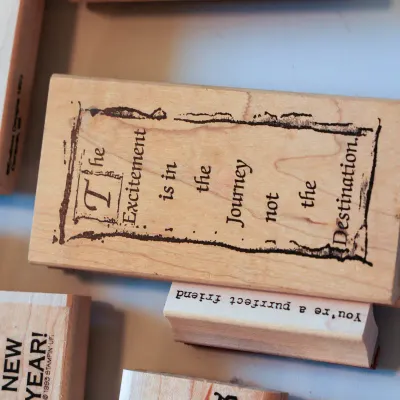 The
Excitement
is in
the
Journey
not
the
Destination.
You're a purrfect friend
NEW
YEAR!
© 1995 STAMPIN' UP!